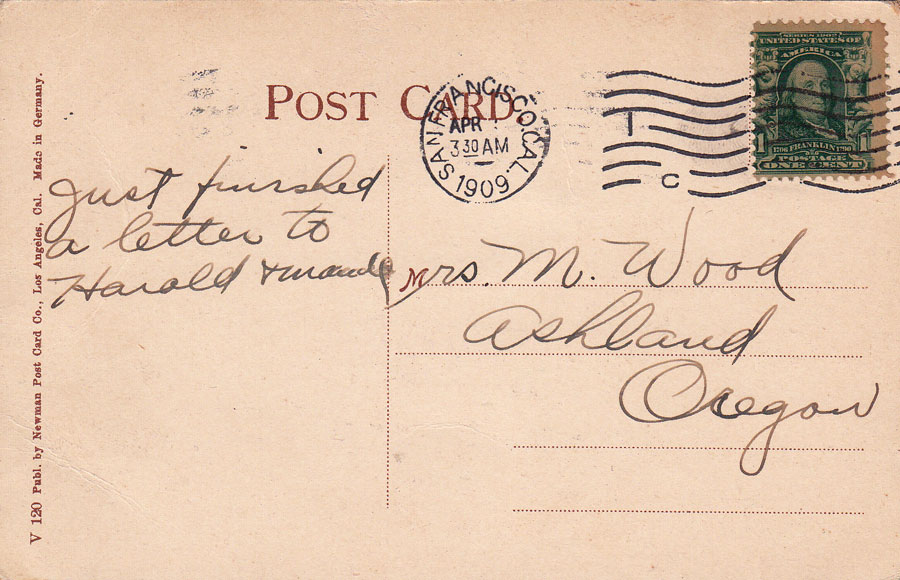 POST CARD.
SAN FRANCISCO, CAL.
APR
3 30 AM
1909
C
SERIES 1902
UNITED STATES OF
AMERICA
1 1
1706 FRANKLIN 1790
POSTAGE
ONE CENT
Just finished
a letter to
Harold +
Mrs. M. Wood
Ashland
Oregon
V 120 Publ. by Newman Post Card Co., Los Angeles, Cal. Made in Germany.